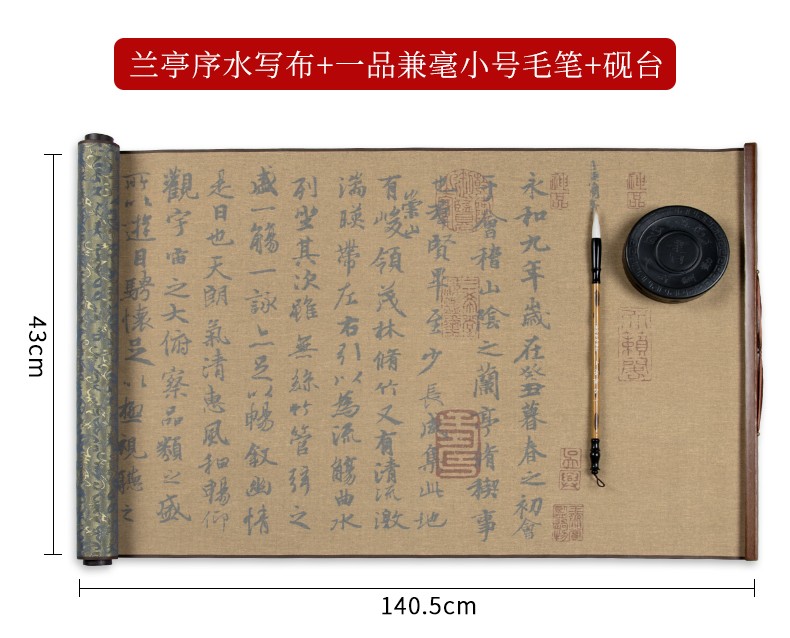 兰亭序水写布+一品兼毫小号毛笔+砚台
永和九年歲在癸丑暮春之初會
于會稽山陰之蘭亭脩禊事
也羣賢畢至少長咸集此地
有崇山峻領茂林脩竹又有清流激
湍暎帶左右引以為流觴曲水
列坐其次雖無絲竹管弦之
盛一觴一詠亦足以暢敘幽情
是日也天朗氣清惠風和暢仰
觀宇宙之大俯察品類之盛
所以遊目騁懷足以極視聽之
43cm
140.5cm